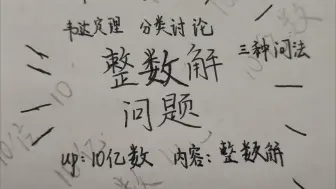 韦达定理 分类讨论
整数解 三种问法
问题
up:10亿数 内容:整数解